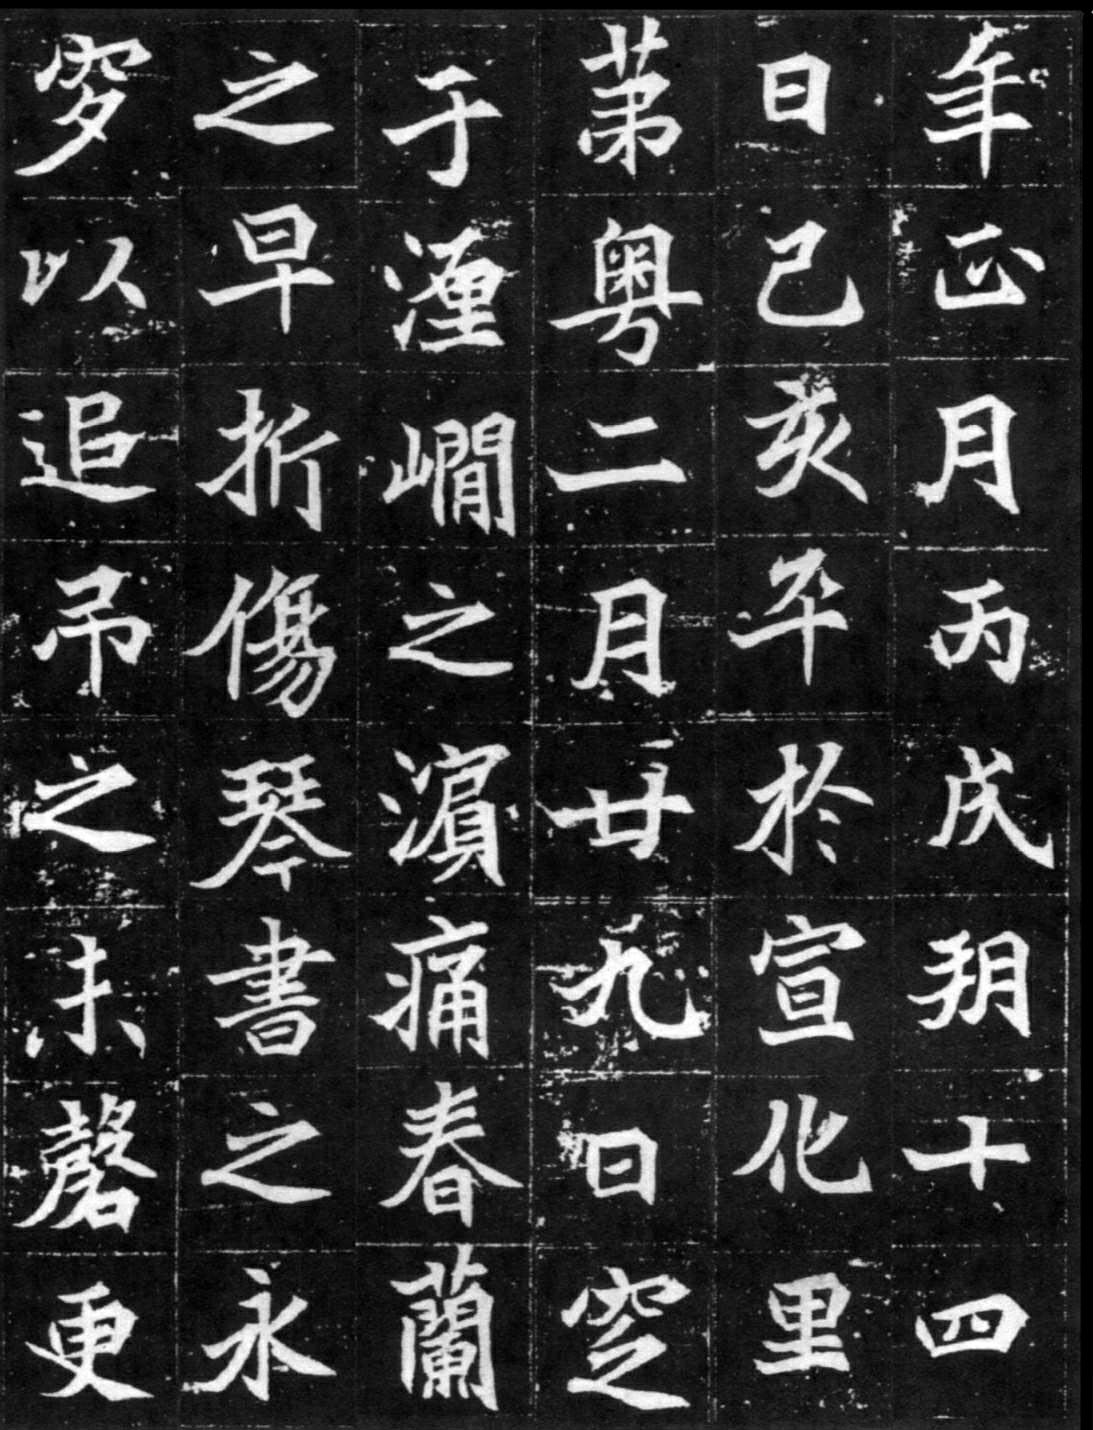 年正月丙戌朔十四
日己亥卒於宣化里
苐粤二月廿九日窆
于瀍澗之濱痛春蘭
之早折傷琴書之永
穸以追吊之未磬更